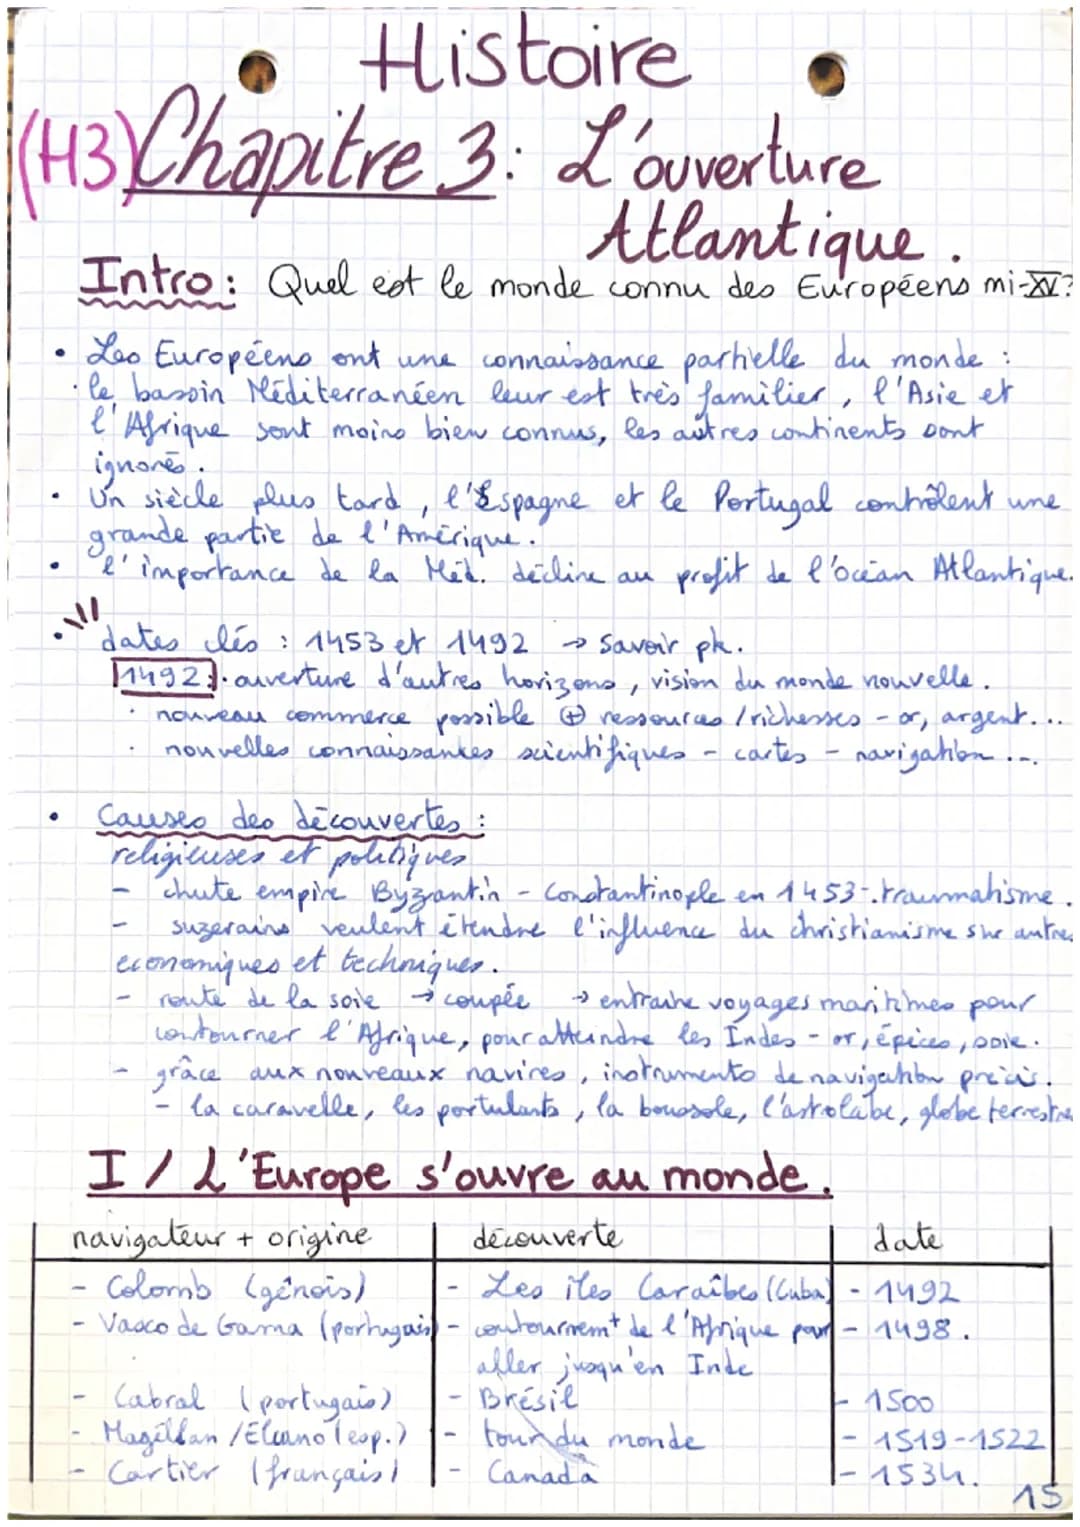 Histoire
(H3) Chapitre 3 : L'ouverture
Atlantique.
Intro : Quel est le monde connu des Européens mi-XV ?
• Les Européens ont une connaissance partielle du monde :
· le bassin Méditerranéen leur est très familier, l'Asie et
l'Afrique sont moins bien connus, les autres continents sont
ignorés.
• Un siècle plus tard, l'Espagne et le Portugal contrôlent une
grande partie de l'Amérique.
• l'importance de la Méd. décline au profit de l'océan Atlantique.
• dates clés : 1453 et 1492 → savoir pk.
1492 : · ouverture d'autres horizons, vision du monde nouvelle.
· nouveau commerce possible ⊕ ressources / richesses - or, argent...
· nouvelles connaissances scientifiques - cartes - navigation ...
• Causes des découvertes :
religieuses et politiques
- chute empire Byzantin - Constantinople en 1453-.traumatisme.
- suzerains veulent étendre l'influence du christianisme sur autres
economiques et techniques.
- route de la soie → coupée → entraine voyages maritimes pour
contourner l'Afrique, pour atteindre les Indes - or, épices, soie.
- grâce aux nouveaux navires, instruments de navigation précis.
- la caravelle, les portulants, la boussole, l'astrolabe, globe terrestre
I / L'Europe s'ouvre au monde.
navigateur + origine découverte date
- Colomb (génois) - Les îles Caraîbes (Cuba) - 1492
- Vasco de Gama (portugais) - contournemt de l'Afrique pour - 1498.
aller jusqu'en Inde
- Cabral (portugais) - Brésil - 1500
- Magellan / Elcano (esp.) - tour du monde - 1519-1522
- Cartier (français) - Canada - 1534.
15